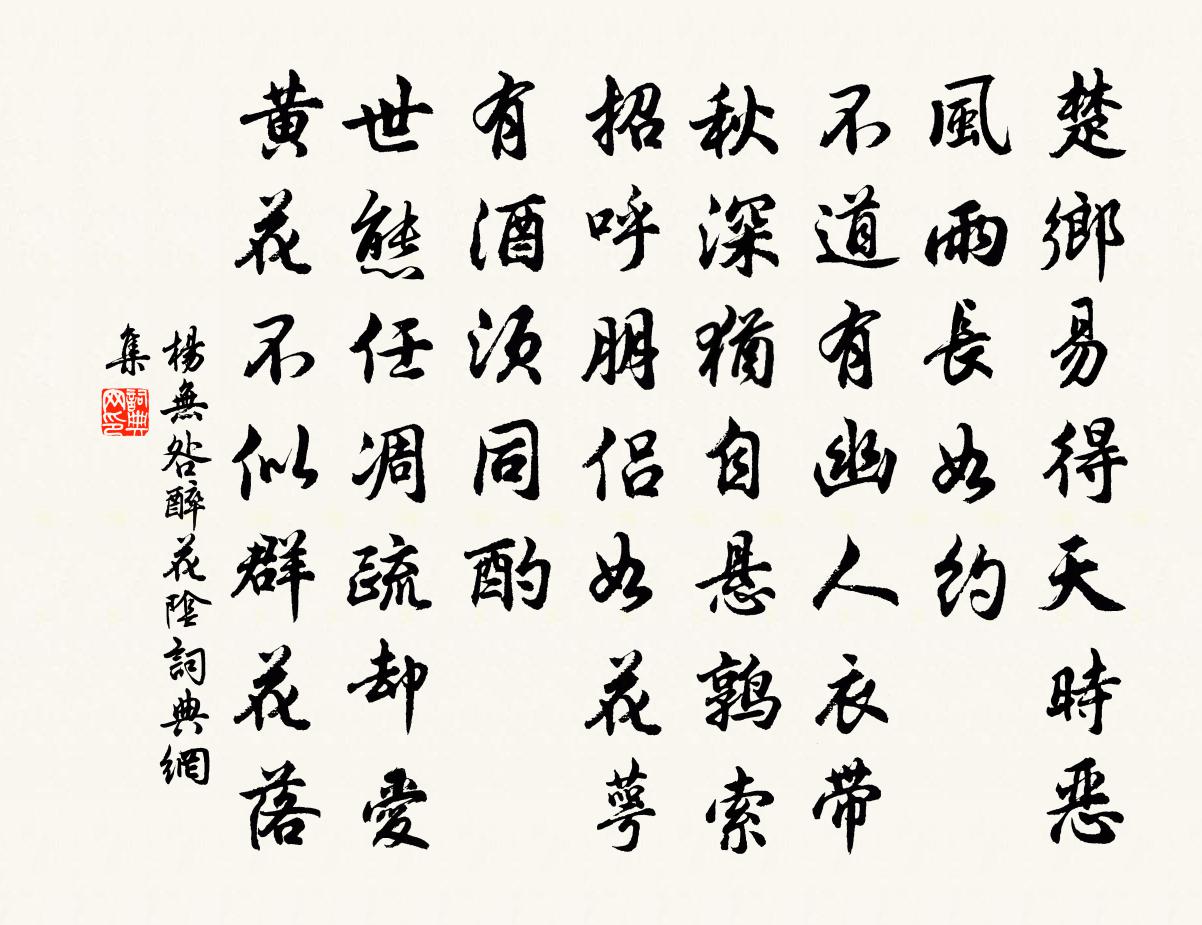 楚鄉易得天時惡
風雨長如約
不道有幽人衣帶
秋深猶自悬鶉索
招呼朋侣如花萼
有酒須同酌
世態任凋疏却愛
黃花不似群花落
楊無咎醉花陰詞典網
集
詞典
网印